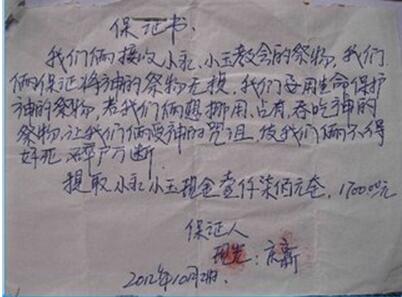 保证书.
我们俩接收小永,小玉教会的祭物,我们
俩保证将神的祭物无损,我们要用生命保护
神的祭物,若我们俩想挪用,占有,吞吃神的
祭物,让我们俩受神的咒诅,使我们俩不得
好死 碎尸万断
提取小永小玉现金壹仟柒佰元整,1700.00元
保证人
2012年10月2日.